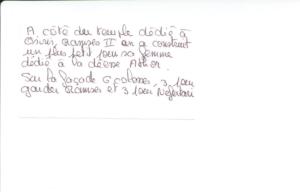 A côté du temple dédié à
Osiris, Ramsès II en a construit
un plus petit pour sa femme
dédié à la déesse Athor.
Sur la façade 6 colosses, 3 pour
garder Ramses et 3 pour Nefertari